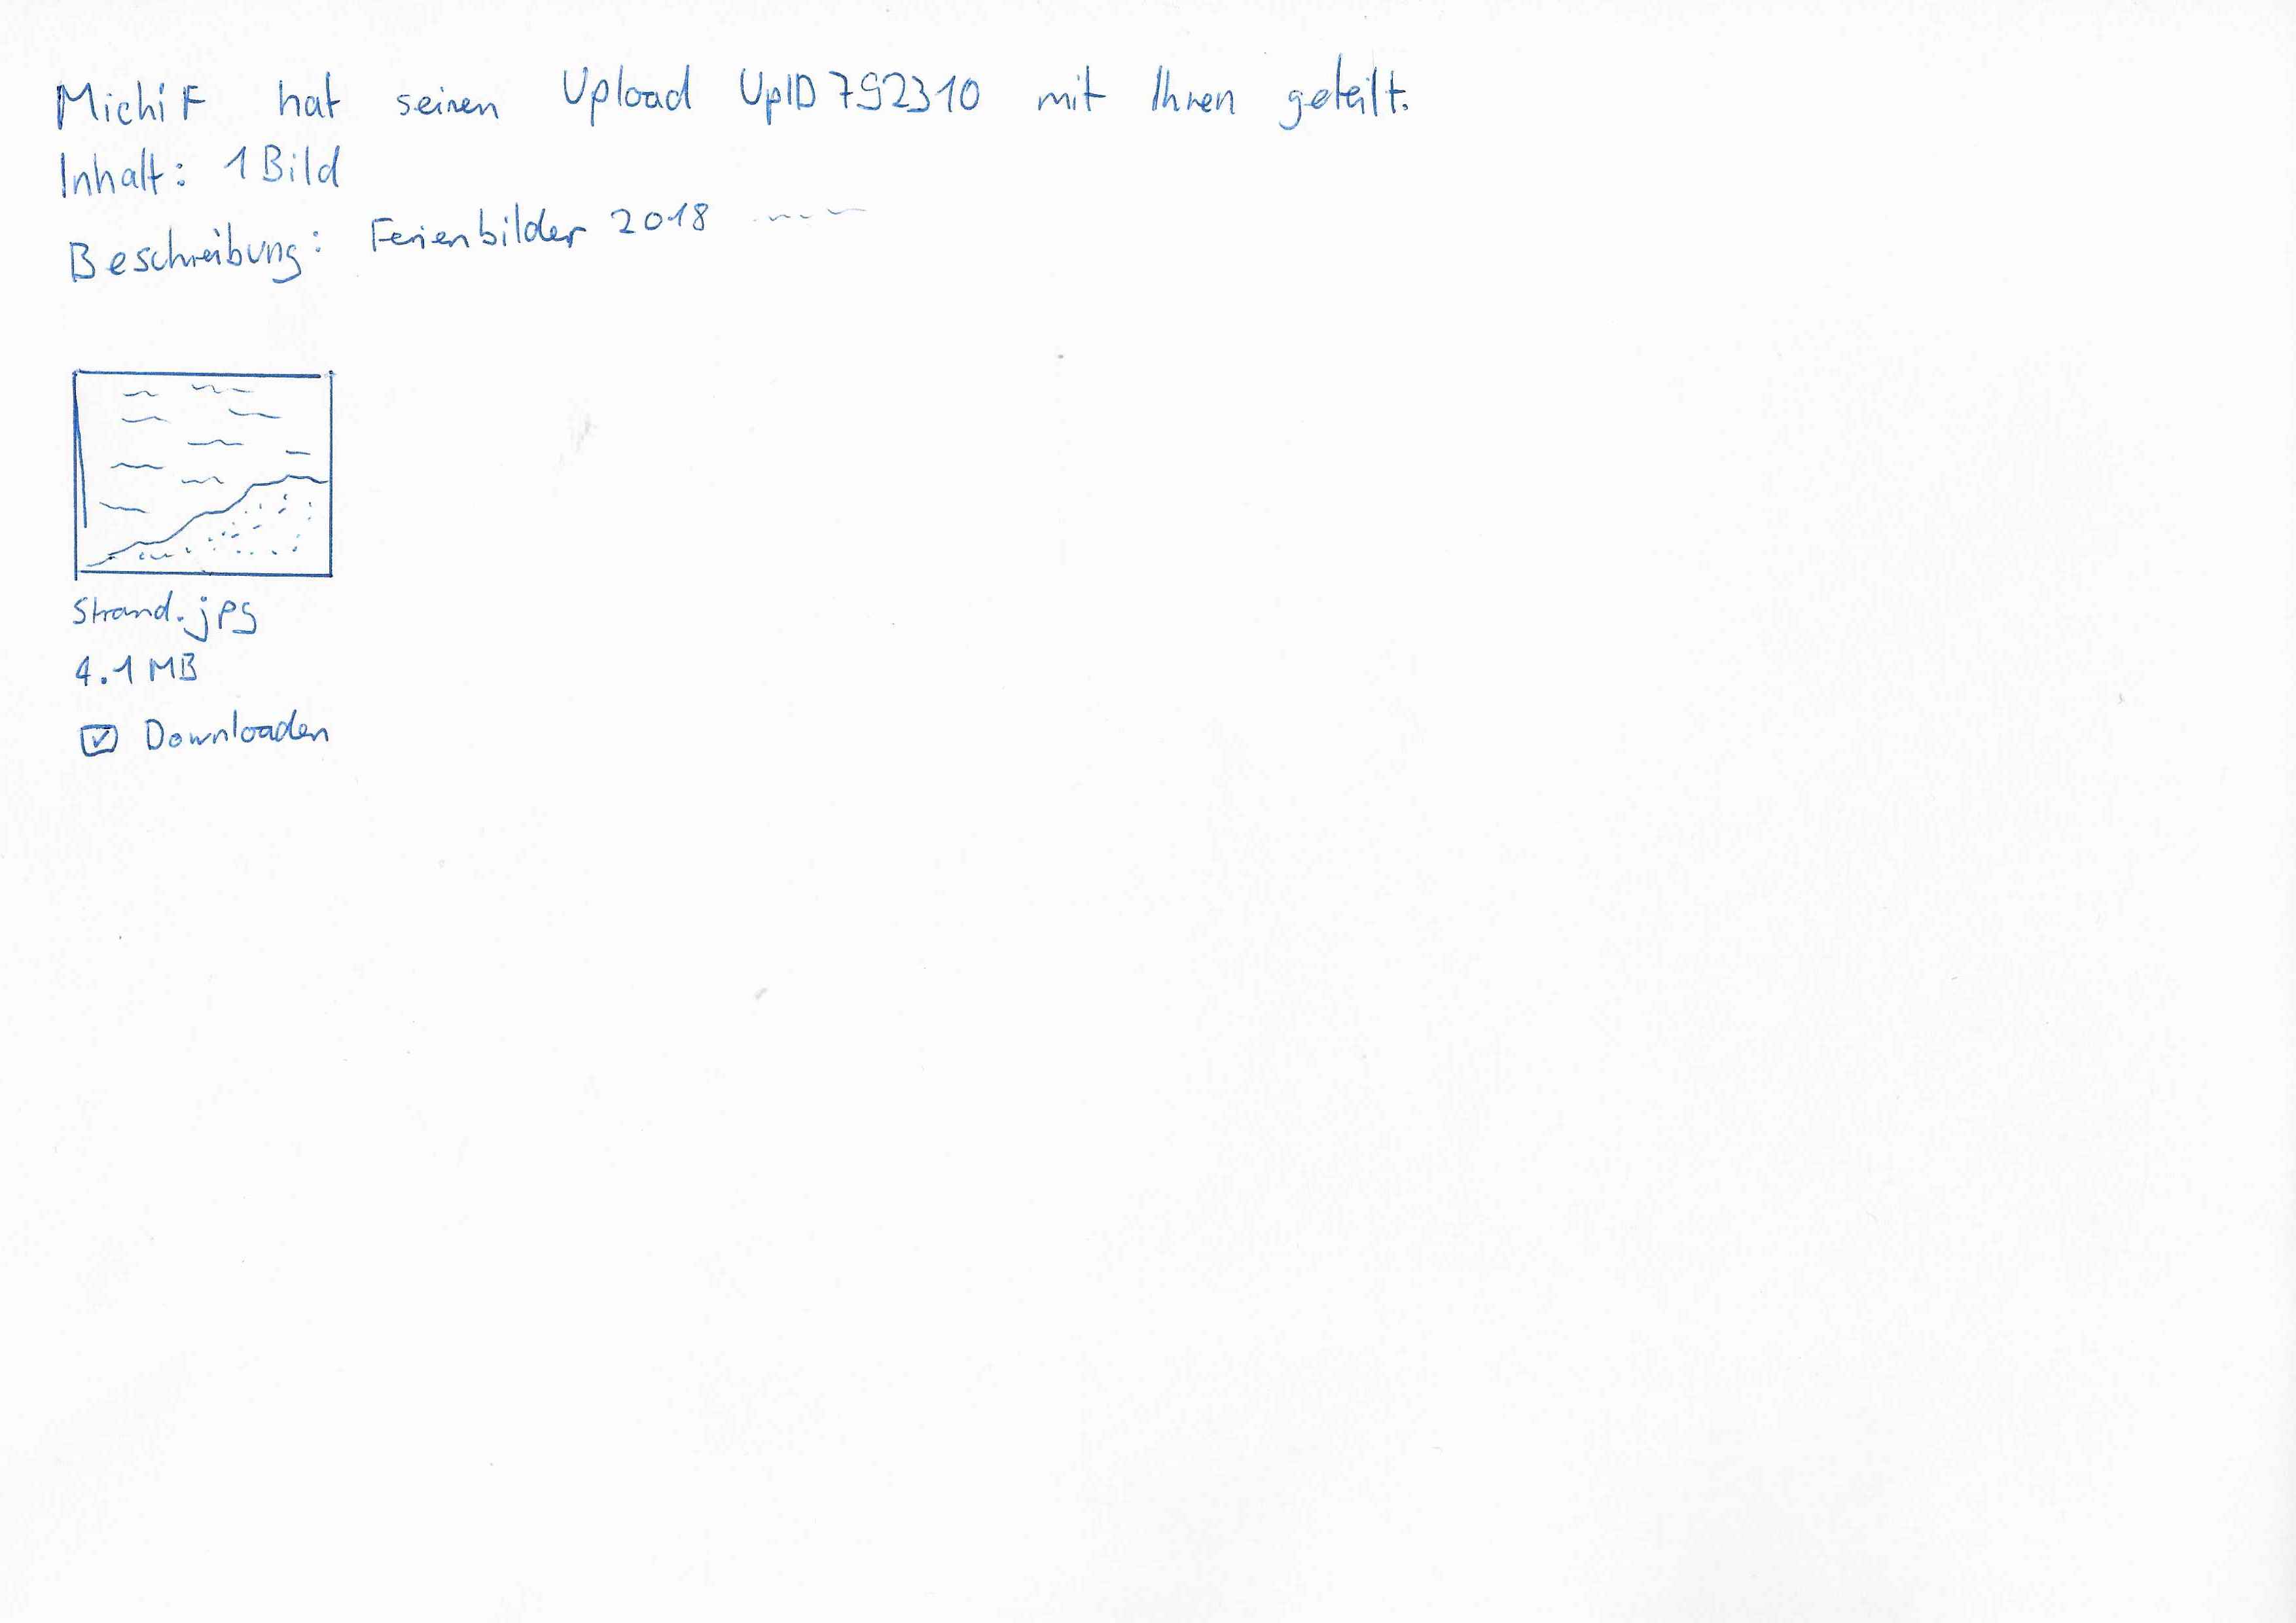 MichiF hat seinen Upload UpID792310 mit Ihnen geteilt.
Inhalt: 1 Bild
Beschreibung: Ferienbilder 2018
Strand.jpg
4.1 MB
Downloaden